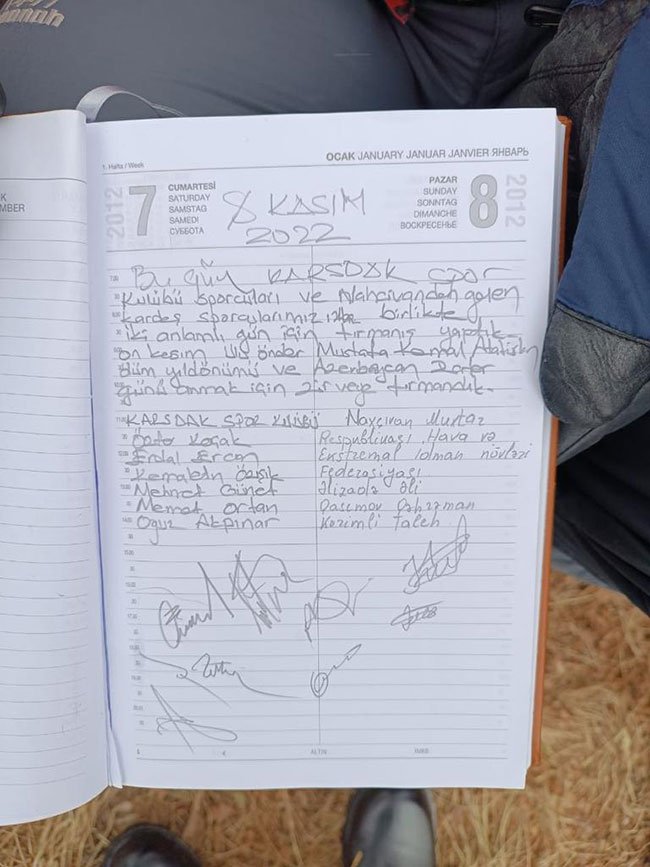 1. Hafta / Week
OCAK JANUARY JANUAR JANVIER ЯНВАРЬ
2012
7
CUMARTESİ
SATURDAY
SAMSTAG
SAMEDI
СУББОТА
8 KASIM
2022
PAZAR
SUNDAY
SONNTAG
DIMANCHE
ВОСКРЕСЕНЬЕ
8
2012
Bu gün KARSDAK spor
Kulübü sporcuları ve Nahcivandan gelen
kardeş sporcularımız birlikte
iki anlamlı gün için tırmanış yaptık
on kasım ulu önder Mustafa Kemal Atatürk
ölüm yıldönümü ve Azerbaycan Zafer
günü anmak için zirveye tırmandık.
KARSDAK SPOR KULÜBÜ Naxçıvan Muxtar
Koçak Respublikası Hava və
Erdal Ercan Ekstremal idman növləri
Kemalettin Federasiyası
Mehmet Günet Əlizadə Əli
Memet Ortan Qasımov Qəhrəman
Oğuz Akpınar Kərimli Taleh
ALTIN
IMKB
MBER